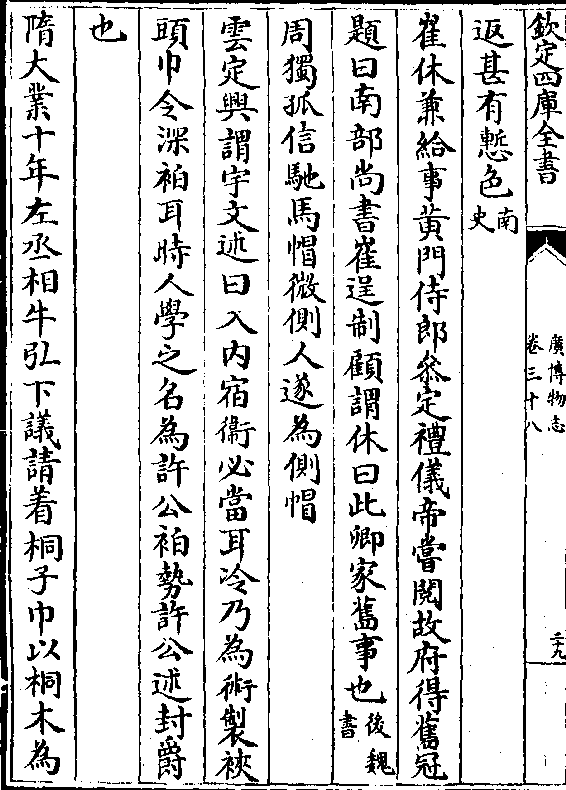 欽定四庫全書
廣博物志
卷三十八
二十九
返甚有慙色南史
崔休兼給事黄門侍郎叅定禮儀帝嘗閲故府得舊冠
題曰南部尚書崔逞制顧謂休曰此卿家舊事也後魏書
周獨孤信馳馬帽微側人遂為側帽
雲定興謂宇文述曰入内宿衛必當耳冷乃為術製裌
頭巾令深袙耳時人學之名為許公袙勢許公述封爵
也
隋大業十年左丞相牛弘下議請着桐子巾以桐木為